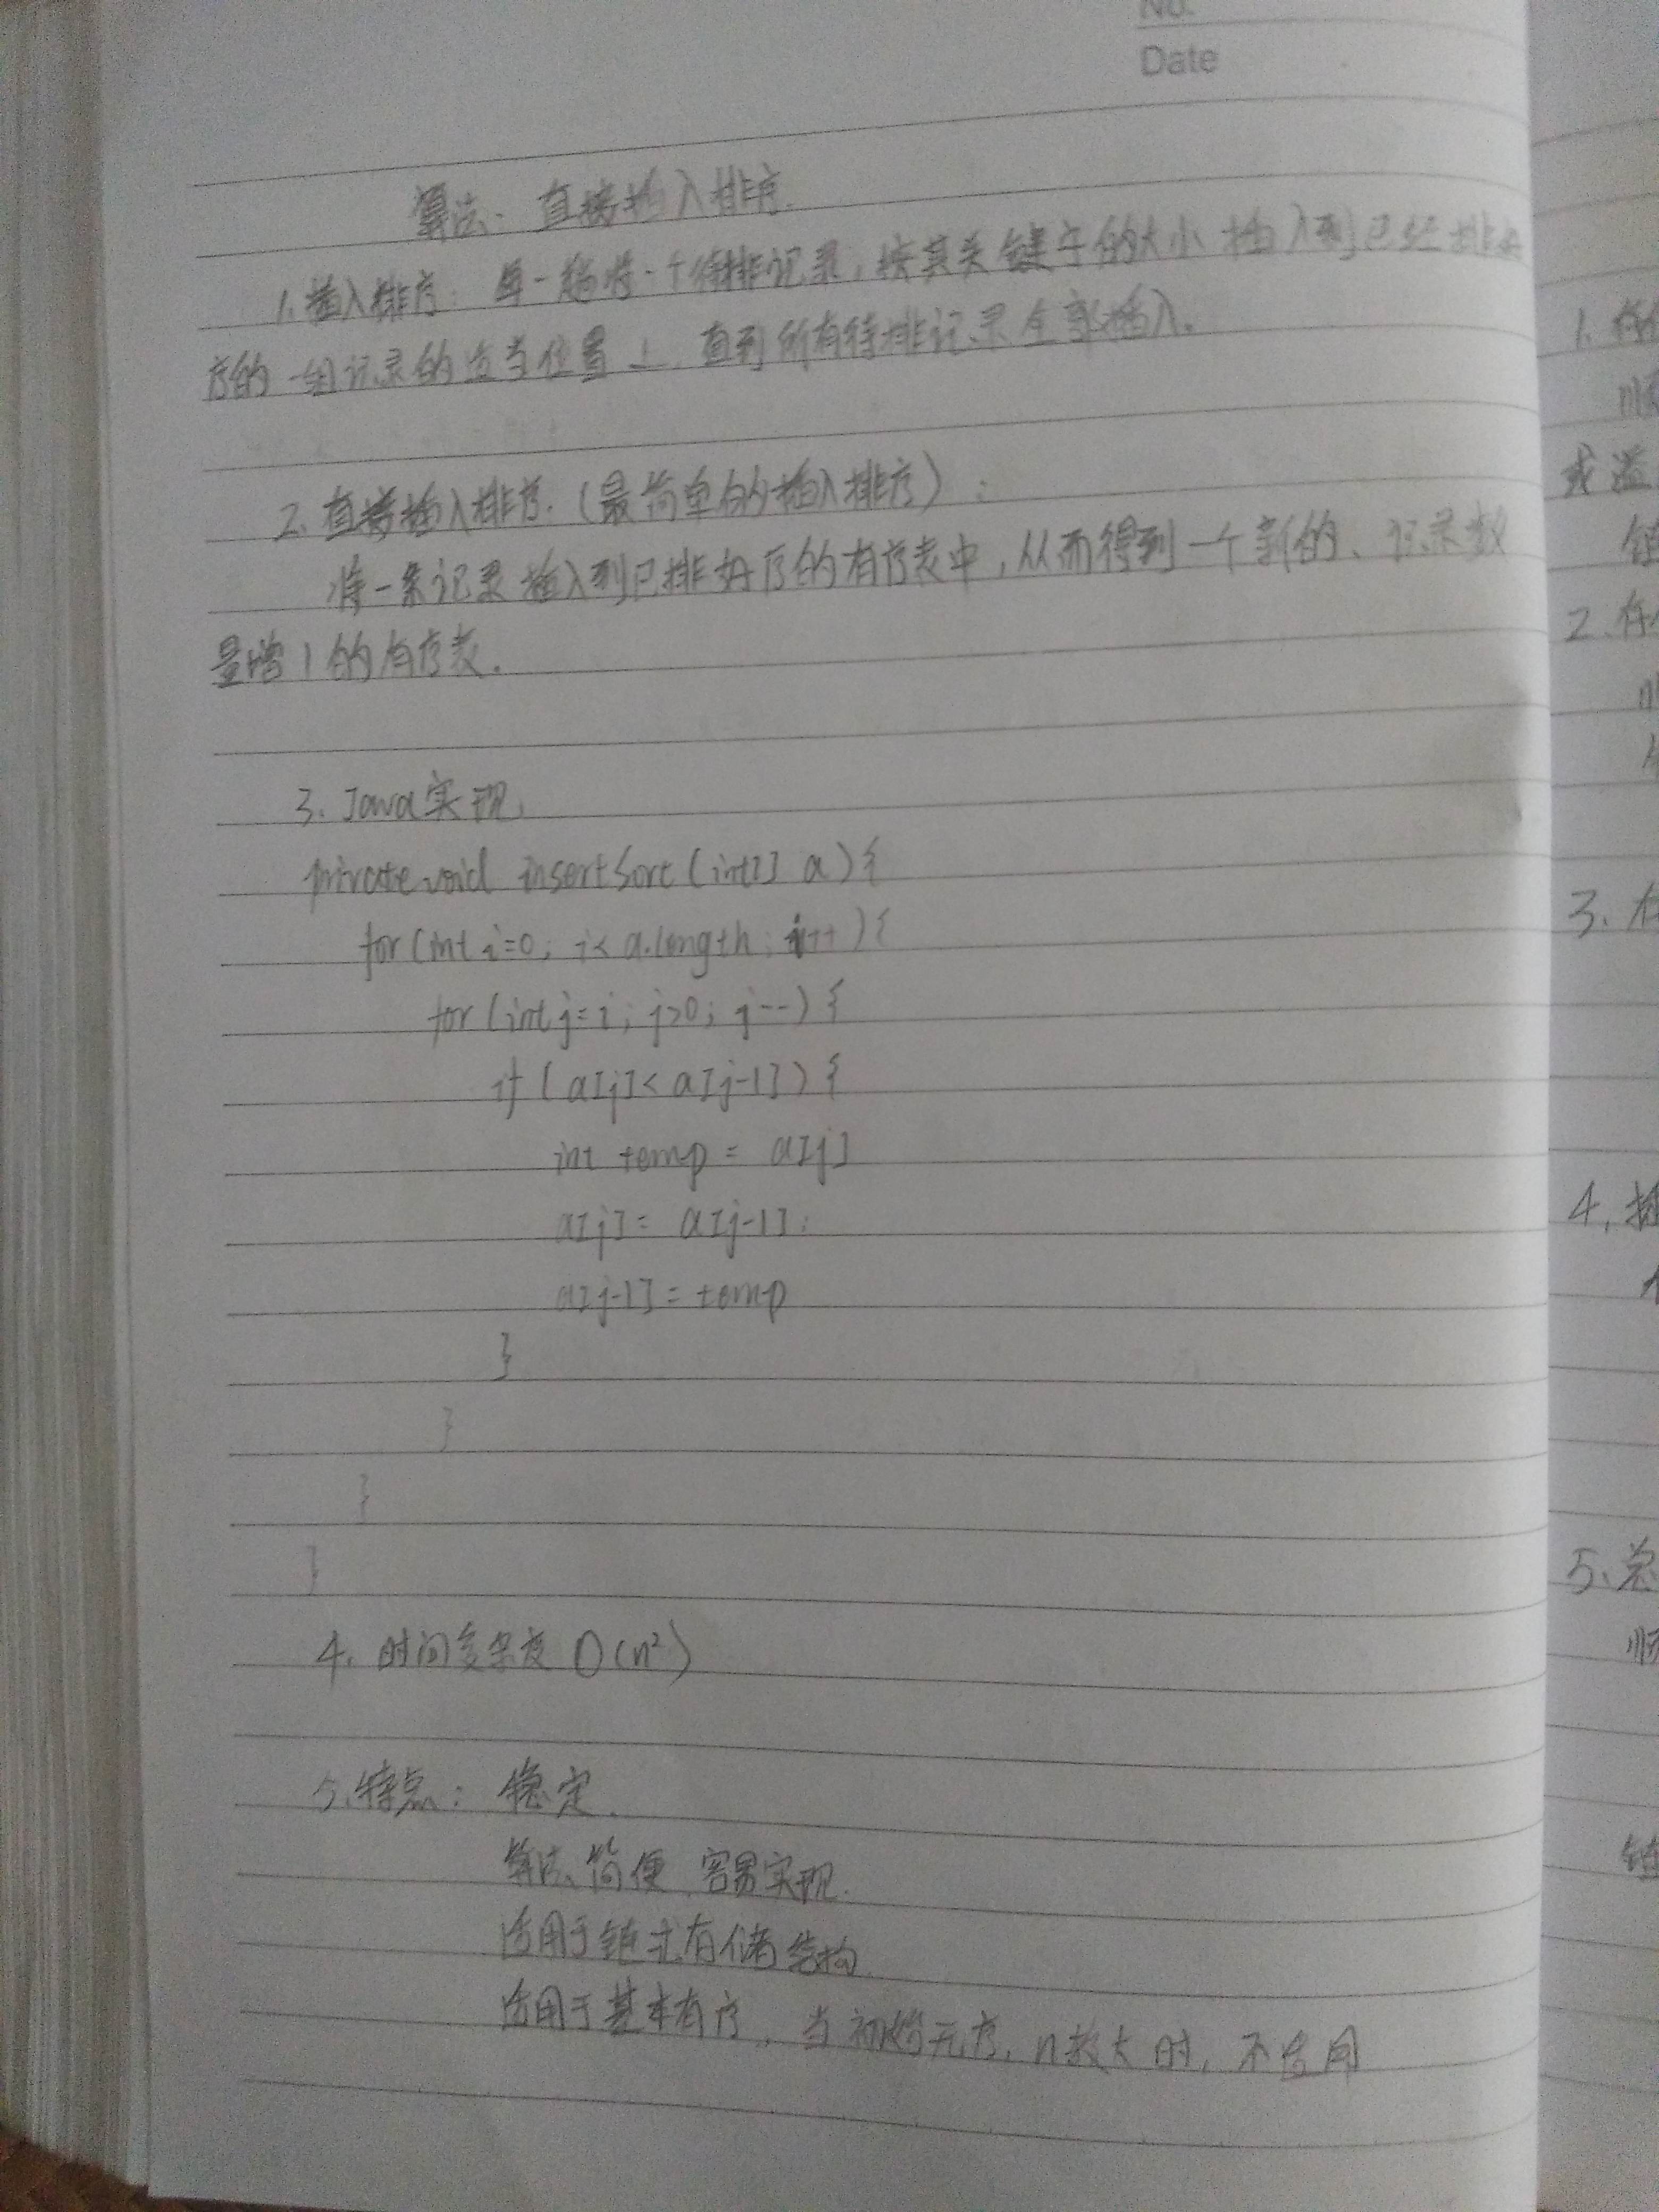 No.
Date
算法：直接插入排序.
1.插入排序：每一趟将一个待排记录，按其关键字的大小插入到已经排好
序的一组记录的适当位置上，直到所有待排记录全部插入.
2.直接插入排序.（最简单的插入排序）：
将一条记录插入到已排好序的有序表中，从而得到一个新的、记录数
量增1的有序表.
3. Java实现.
private void insertSort(int[] a){
for(int i=0; i< a.length; i++){
for(int j=i; j>0; j--){
if(a[j]< a[j-1]){
int temp = a[j]
a[j]= a[j-1];
a[j-1]= temp
}
}
}
}
4. 时间复杂度 O(n²)
5.特点：稳定.
算法简便，容易实现.
适用于链式存储结构.
适用于基本有序，当初始无序，n较大时，不适用
1.
2.
3.
4.
5.